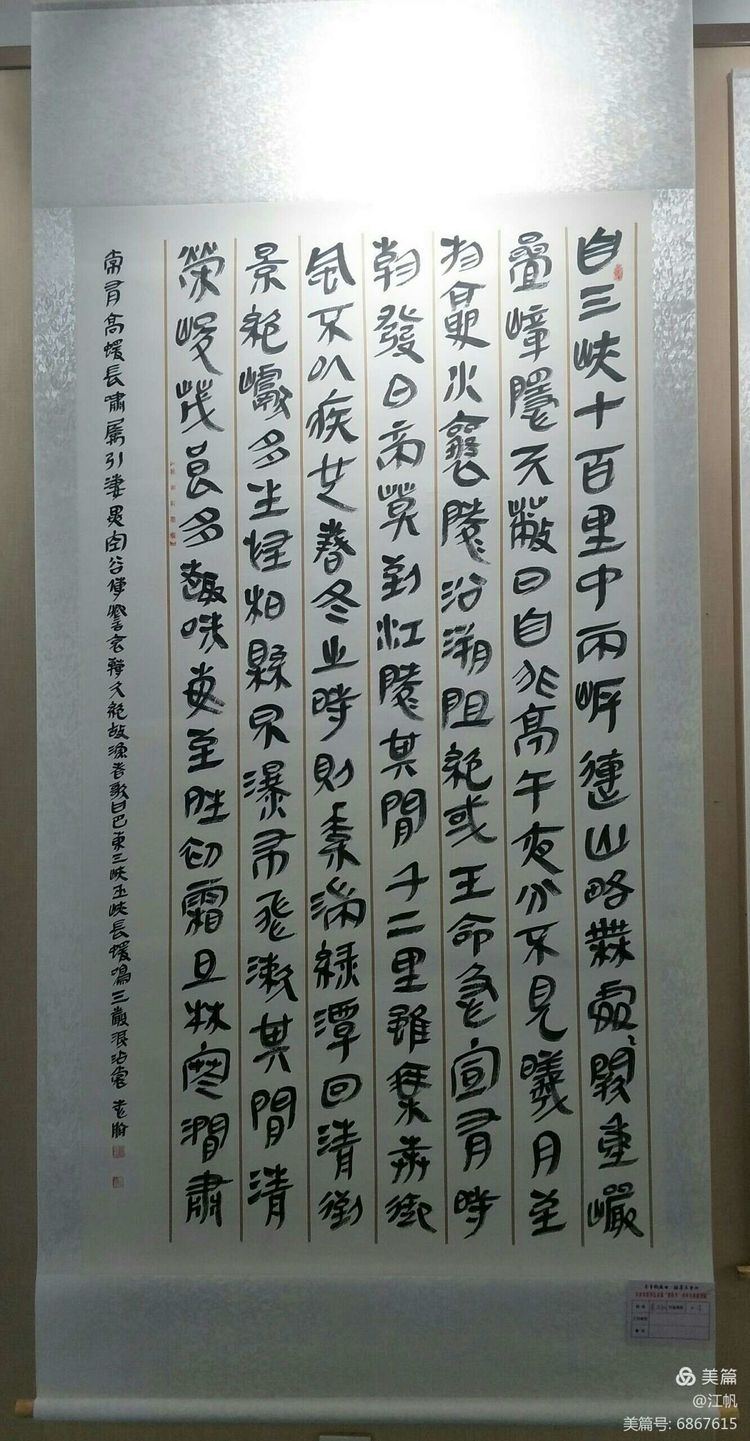 自三峽七百里中兩岸連山略無處闕重巖
疊嶂隱天蔽日自非高午夜分不見曦月至
於夏水襄陵沿溯阻絕或王命急宣有時
朝發白帝莫到江陵其間千二里雖乘奔御
風不以疾也春冬之時則素湍綠潭回清倒
景絕巘多生怪柏縣泉瀑布飛漱其間清
榮峻茂良多趣味每至晴初霜旦林寒澗肅
常有高猨長嘯屬引淒異空谷傳響哀轉久絕故漁者歌曰巴東三峽巫峽長猨鳴三聲淚沾裳
美篇
@江帆
美篇号: 6867615